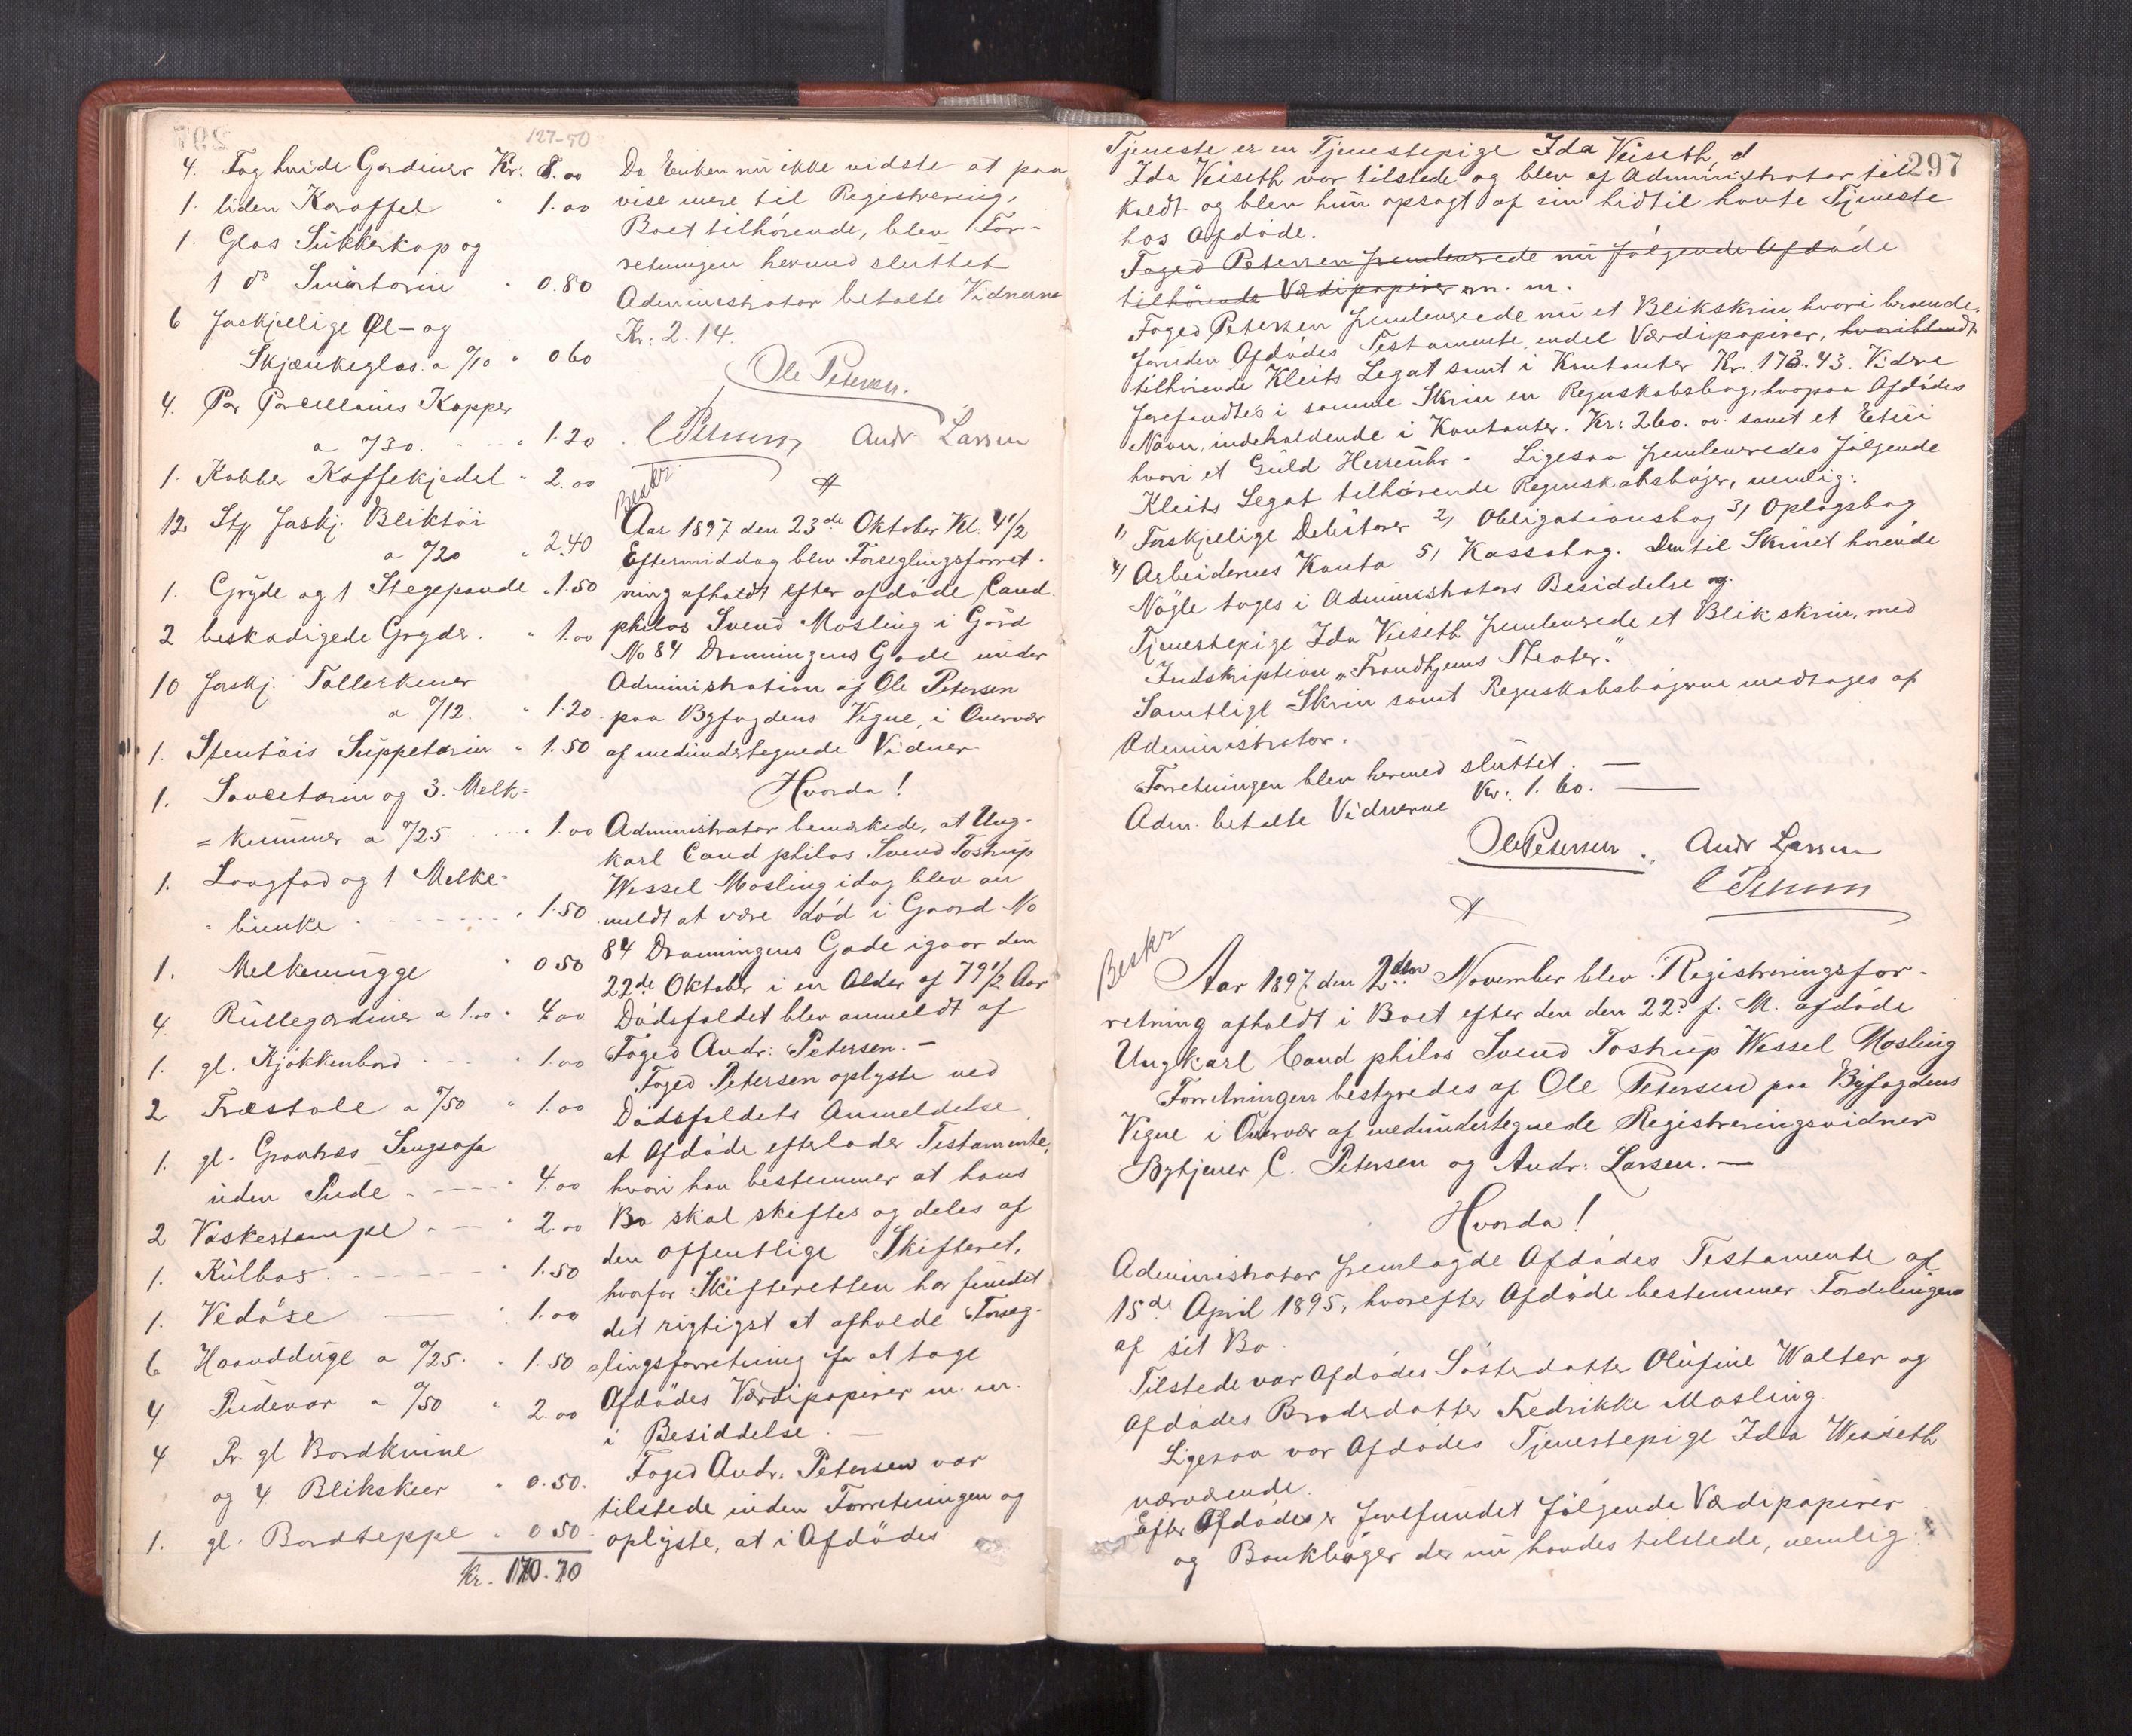 127-50
4. Fag hvide Gardiner Kr: 8.00
1. liden Karaffel " 1.00
1. Glas Sukkerkop og
1 do Smørterin " 0.80
6 forskjellige Øl- og
Skjænkeglas a 0/10 " 0 60
4. Par Porcellains Kopper
a 0/30. " 1.20
1. Kobber Kaffekjedel " 2.00
12. Stk forskj. Bliktøi
a 0/20 " 2.40
1. Gryde og 1 Stegepande " 1.50
2 beskadigede Gryder. " 1.00
10 forskj. Tallerkener
a 0/12. " 1.20
1. Stentøis Suppeterin " 1.50
1. Sauceterin og 3. Melk=
= kummer a 0/25. " 1.00
1. Langfad og 1 Melke-
- bunke " 1.50
1. Melkemugge " 0 50
4. Rullegardiner a 1.00 " 4.00
1. gl. Kjøkkenbord " 1.00
2 Træstole a 0/50 " 1.00
1. gl. Grantræs Sengsofa
uden Pude " 4.00
2 Vaskestampe " 2.00
1. Kulbox " 1.50
1. Vedøxe " 1.00
6 Haandduge a 0/25. " 1.50
4 Pudevar a 0/50 " 2.00
4 Pr. gl Bordknive
og 4 Blikskeer " 0.50.
1. gl. Bordteppe " 0 50
Kr. 170.70
Da Enken nu ikke vidste at paa
vise mere til Registrering,
Boet tilhørende, blev For-
retningen hermed sluttet
Administrator betalte Vidnerne
Kr: 2.14.
Ole Petersen.
C Petersen Andr Larsen
Beskr.
Aar 1897 den 23de Oktober Kl. 4 1/2
Eftermiddag blev Forseglingsforret-
ning afholdt efter afdøde Cand.
philos Svend Mosling i Gård
No 84 Dronningens Gade under
Administration af Ole Petersen
paa Byfogdens Vegne, i Overvær
af medundertegnede Vidner
Hvorda!
Administrator bemærkede, at Ung-
karl Cand philos Svend Tostrup
Wessel Mosling idag blev an
meldt at være død i Gaard No
84 Dronningens Gade igaar den
22de Oktober i en Alder af 79 1/2 Aar
Dødsfaldet blev anmeldt af
Foged Andr: Petersen. -
Foged Petersen oplyste ved
Dødsfaldets Anmeldelse,
at Afdøde efterlader Testamente,
hvori han bestemmer at hans
Bo skal skiftes og deles af
den offentlige Skifteret,
hvorfor Skifteretten har fundet
det rigtigst at afholde Forseg-
=lingsforretning for at tage
Afdødes Værdipapirer m. m.
i Besiddelse. -
Foged Andr: Petersen var
tilstede under Forretningen og
oplyste, at i Afdødes
297
Tjeneste er en Tjenestepige Ida Veiseth, d
Ida Veiseth var tilstede og blev af Administrator til
kaldt og blev hun opsagt af sin hidtil havte Tjeneste
hos Afdøde.
Foged Petersen fremleverede nu følgende Afdøde
tilhørende Værdipapirer m. m.
Foged Petersen fremleverede nu et Blikskrin, hvori beroende,
foruden Afdødes Testamente, endel Værdipapirer, hvoriblandt
tilhørende Kleits Legat samt i Kontanter Kr. 173.43. Videre
forefandtes i samme Skrin en Regnskabsbog, hvorpaa Afdødes
Navn, indeholdende i Kontanter. Kr: 260. 00 samt et Etui
hvori et Guld Herreuhr - Ligesaa fremleveredes følgende
Kleits Legat tilhørende Regnskabsbøger, nemlig:
1) Forskjellige Debitorer 2) Obligationsbog 3) Oplagsbog
4) Arbeidernes Konto 5) Kassabog. Den til Skrinet hørende
Nøgle toges i Administrators Besiddelse og
Tjenestepige Ida Veiseth fremleverede et Blikskrin, med
Indskription „Trondhjems Theater."
Samtlige Skrin samt Regnskabsbøgerne modtages af
Administrator.
Forretningen blev hermed sluttet. —
Adm. betalte Vidnerne Kr: 1. 60. —
Ole Petersen. Andr Larsen
C Petersen
Beskr
Aar 1897 den 2den November blev Registreringsfor-
retning afholdt i Boet efter den den 22d f. M. afdøde
Ungkarl Cand philos Svend Tostrup Wessel Mosling
Forretningen bestyredes af Ole Petersen paa Byfogdens
Vegne i Overvær af medundertegnede Registreringsvidner
Bytjener C. Petersen og Andr: Larsen. —
Hvorda!
Administrator fremlagde Afdødes Testamente af
15de April 1895, hvorefter Afdøde bestemmer Fordelingen
af sit Bo.
Tilstede var Afdødes Søsterdatter Olufine Walter og
Afdødes Broderdatter Fredrikke Mosling.
Ligesaa var Afdødes Tjenestepige Ida Weiseth
nærværende.
Efter Afdødes er forefundet følgende Vædipapirer
og Bankbøger der nu havdes tilstede, nemlig: